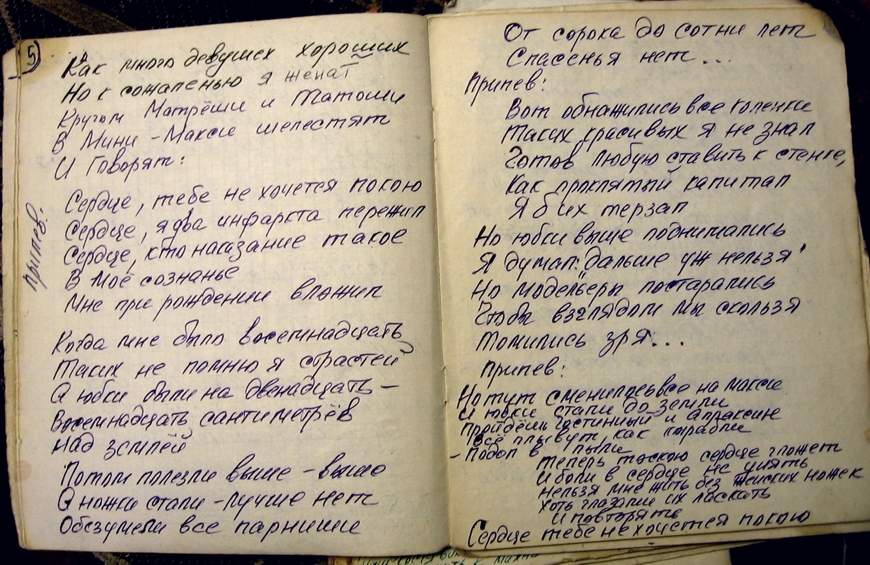 5
Как много девушек хороших
Но к сожаленью я женат
Кругом Матрёши и Татоши
В Мини - Макси шелестят
И Говорят:
Припев:
Сердце, тебе не хочется покою
Сердце, я два инфаркта пережил
Сердце, кто наказание такое
В моё сознанье
Мне при рождении вложил
Когда мне было восемнадцать
Таких не помню я страстей
А юбки были на двенадцать -
Восемнадцать сантиметрёв
Над землёй
Потом полезли выше - выше
А ножки стали - лучше нет
Обезумели все парнишки
От сорока до сотни лет
Спасенья нет...
Припев:
Вот обнажились все коленки
Таких красивых я не знал
Готов любую ставить к стенке,
Как проклятый капитал
Я б их терзал
Но юбки выше поднимались
Я думал: "дальше уж нельзя"
Но модельеры постарались
Чтобы взглядом мы скользя
Томились зря...
Припев:
Но тут сменилось все на макси
И юбки стали до земли
Пройдёшь гостинный и апраксине
Всё плывут, как корабли
- Подол в пыли
Теперь тоскою сердце гложет
И боли в сердце не унять
Нельзя мне жить без женских ножек
Хоть глазами их ласкать
И повторять
Сердце тебе не хочется покою